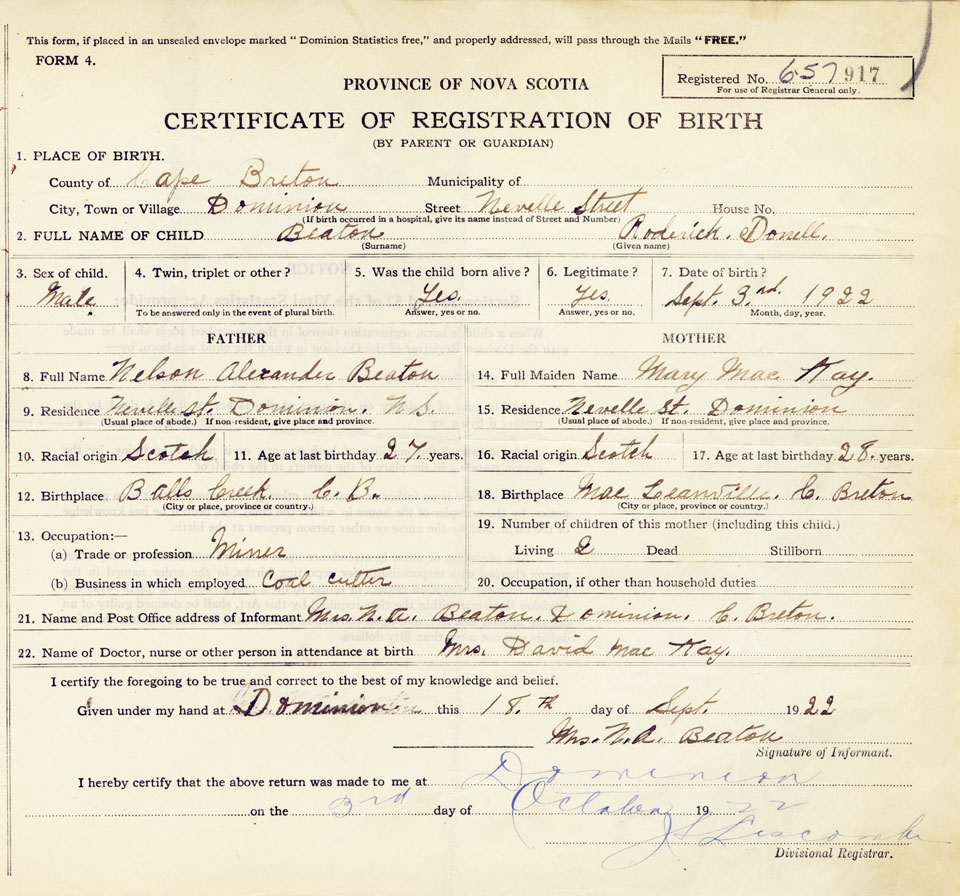 This form, if placed in an unsealed envelope marked "Dominion Statistics free," and properly addressed, will pass through the Mails "FREE."
FORM 4.
Registered No. 657 917
For use of Registrar General only.
PROVINCE OF NOVA SCOTIA
CERTIFICATE OF REGISTRATION OF BIRTH
(BY PARENT OR GUARDIAN)
1. PLACE OF BIRTH.
County of Cape Breton Municipality of
City, Town or Village Dominion Street Nevelle Street House No.
(If birth occurred in a hospital, give its name instead of Street and Number)
2. FULL NAME OF CHILD Beaton Roderick. Donell.
(Surname) (Given name)
3. Sex of child. 4. Twin, triplet or other? 5. Was the child born alive? 6. Legitimate? 7. Date of birth?
Male Yes. Yes. Sept. 3rd. 1922
To be answered only in the event of plural birth. Answer, yes or no. Answer, yes or no. Month, day, year.
FATHER MOTHER
8. Full Name Nelson Alexander Beaton 14. Full Maiden Name Mary Mac Kay.
9. Residence Nevelle St. Dominion. N.S. 15. Residence Nevelle St. Dominion
(Usual place of abode.) If non-resident, give place and province. (Usual place of abode.) If non-resident, give place and province.
10. Racial origin Scotch 11. Age at last birthday 27 years. 16. Racial origin Scotch 17. Age at last birthday 28. years.
12. Birthplace Balls Creek. C. B. 18. Birthplace Mac Leanville. C. Breton
(City or place, province or country.) (City or place, province or country.)
19. Number of children of this mother (including this child.)
13. Occupation:—
(a) Trade or profession Miner Living 2 Dead Stillborn
(b) Business in which employed Coal cutter 20. Occupation, if other than household duties
21. Name and Post Office address of Informant Mrs. N. A. Beaton. Dominion. C. Breton.
22. Name of Doctor, nurse or other person in attendance at birth Mrs. David Mac Kay.
I certify the foregoing to be true and correct to the best of my knowledge and belief.
Given under my hand at Dominion this 18.th day of Sept. 1922
Mrs. N. A. Beaton
Signature of Informant.
I hereby certify that the above return was made to me at Dominion
on the 3rd day of October 19 22
Divisional Registrar.